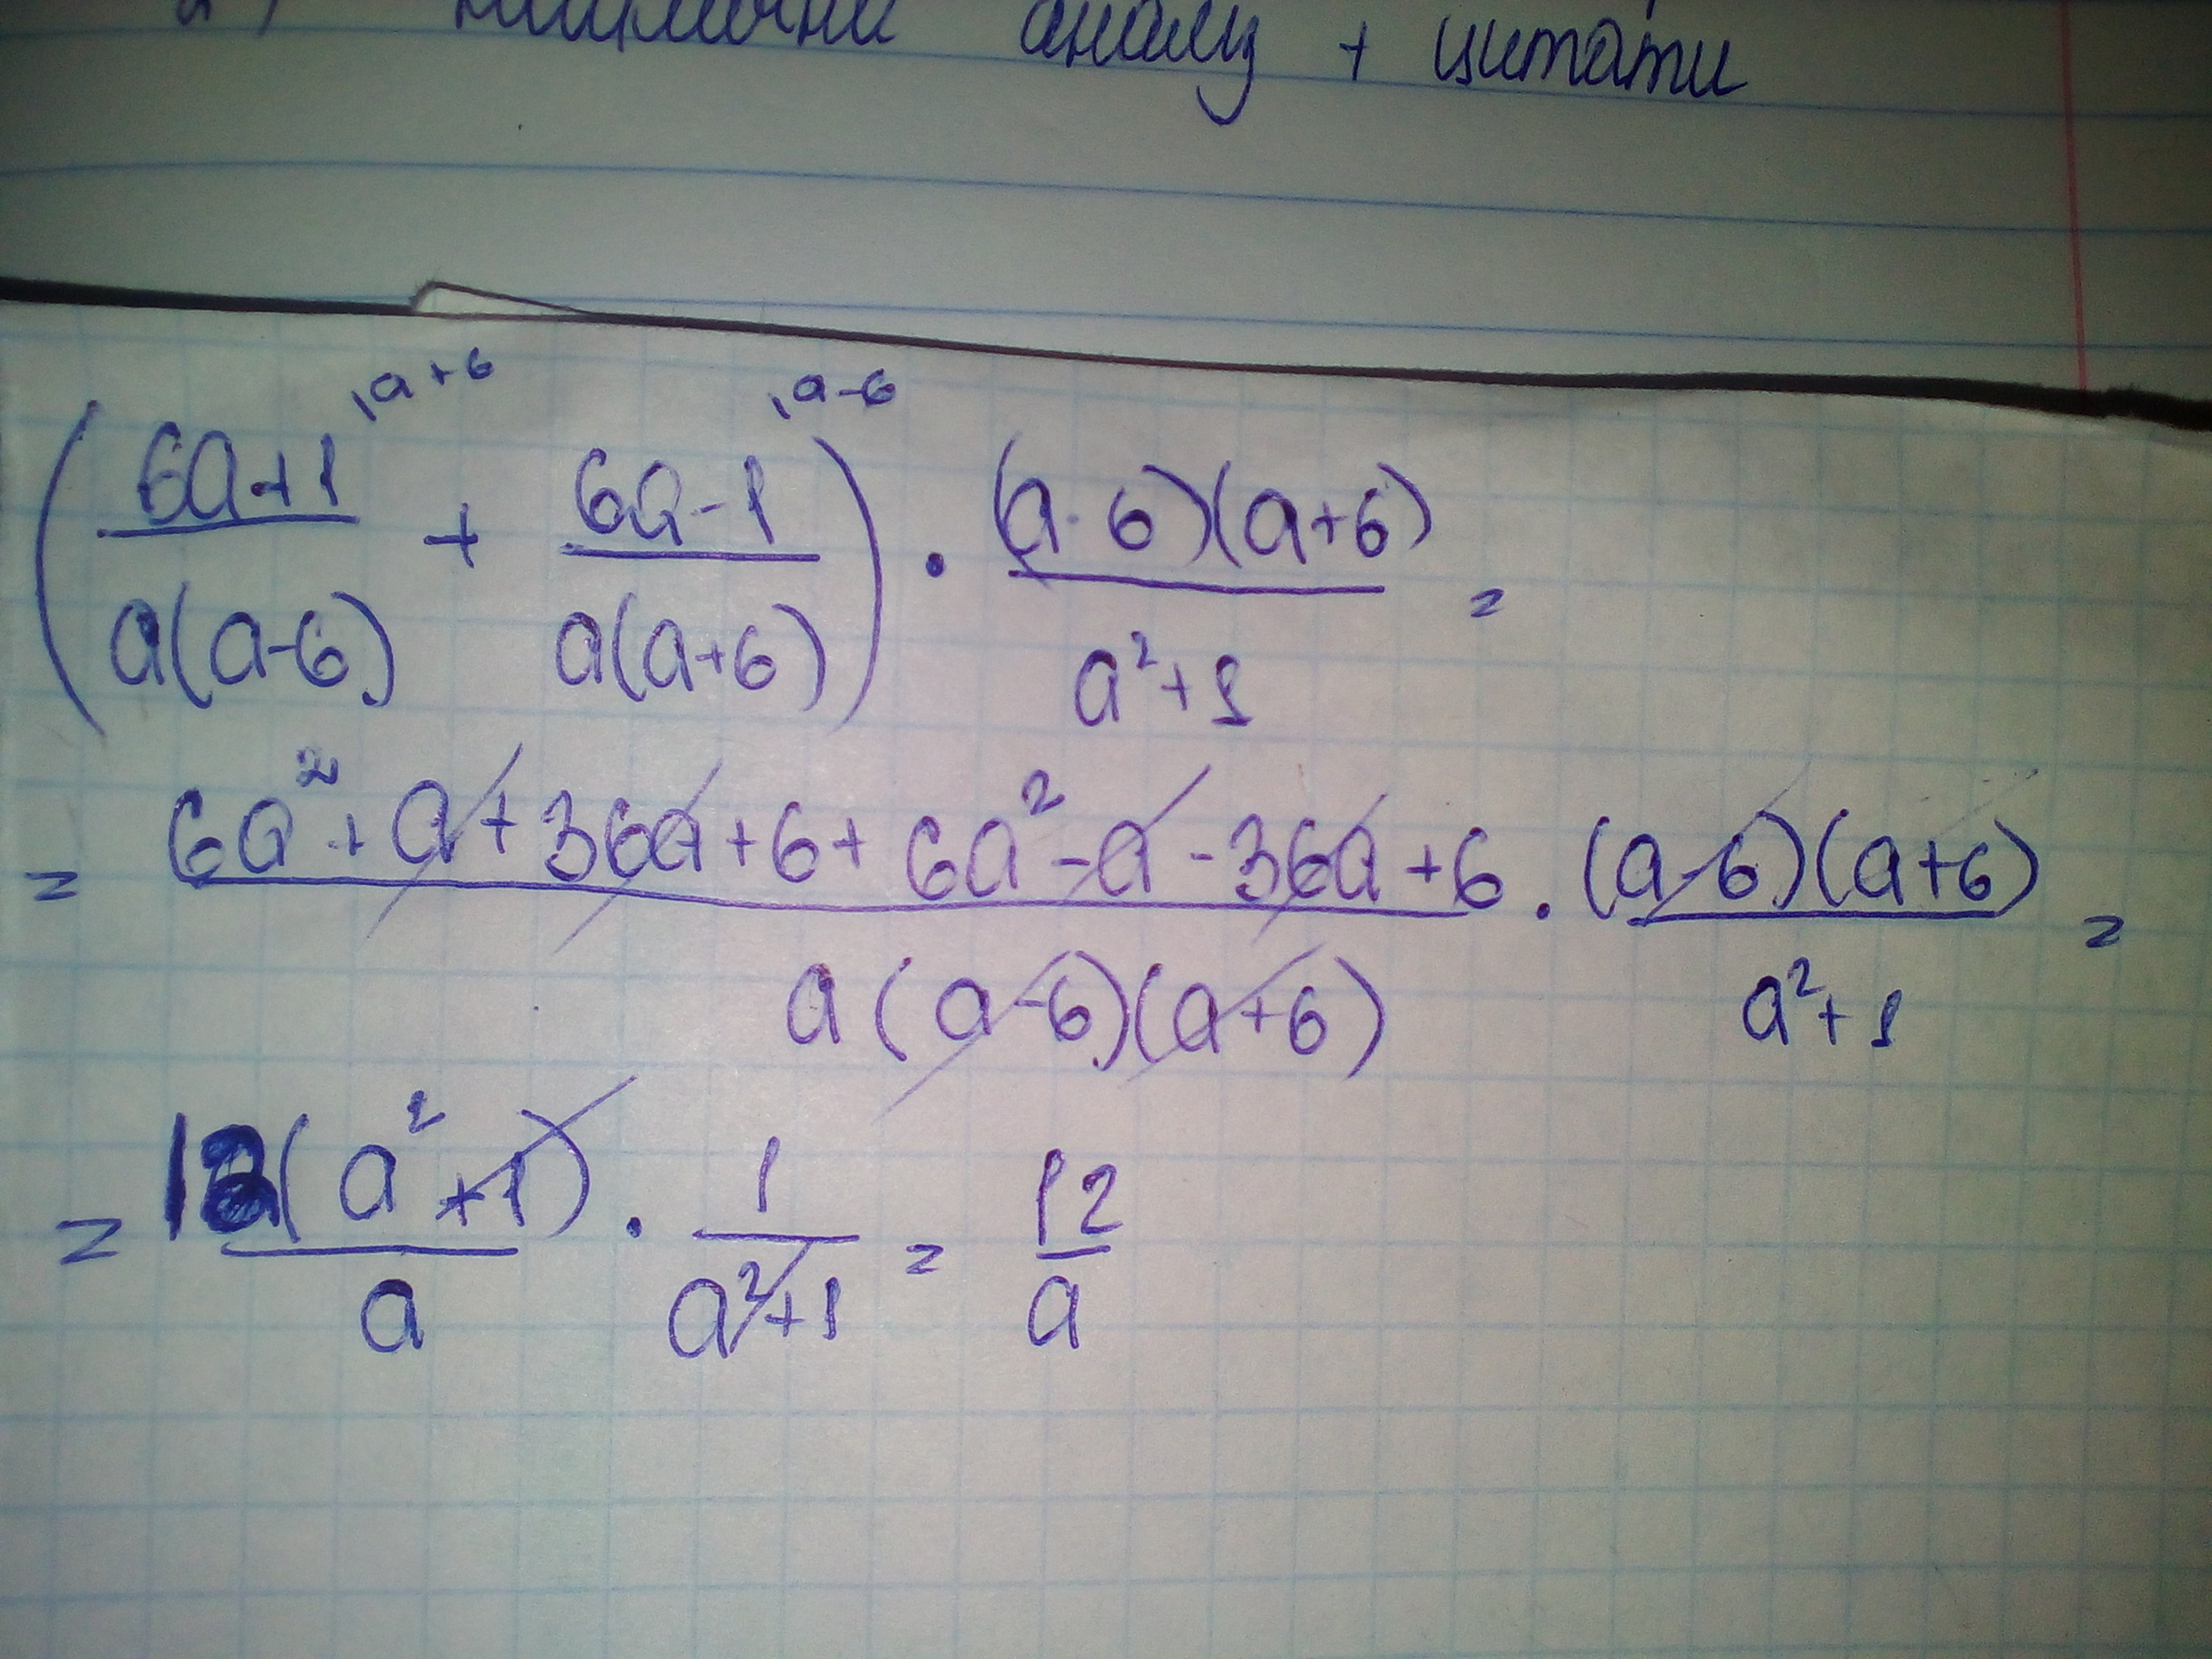 аналіз + цитати
( (6a+1)/(a(a-6)) |a+6 + (6a-1)/(a(a+6)) |a-6 ) · ((a-6)(a+6))/(a²+1) =
= (6a²+a+36a+6+6a²-a-36a+6)/(a(a-6)(a+6)) · ((a-6)(a+6))/(a²+1) =
= (12(a²+1))/a · 1/(a²+1) = 12/a